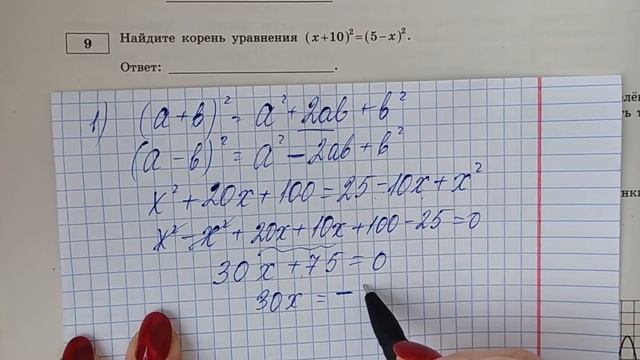 9
Найдите корень уравнения (x+10)²=(5−x)².
Ответ:
1) (a+b)² = a²+2ab+b²
(a−b)² = a²−2ab+b²
x²+20x+100=25−10x+x²
x²−x²+20x+10x+100−25=0
30x+75=0
30x=−